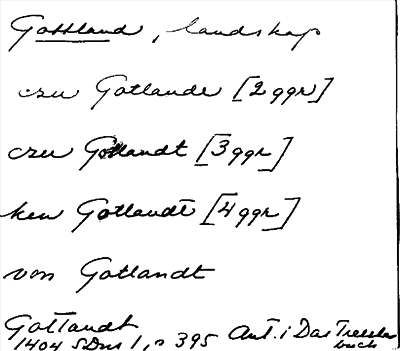 Gottland, landskap
czu Gotlande [2 ggr]
czu Gotlandt [3 ggr]
ken Gotlandt [4 ggr]
von Gotlandt
Gotlandt
1404 SDns 1, s 395 Ant. i Das Tressler
buch